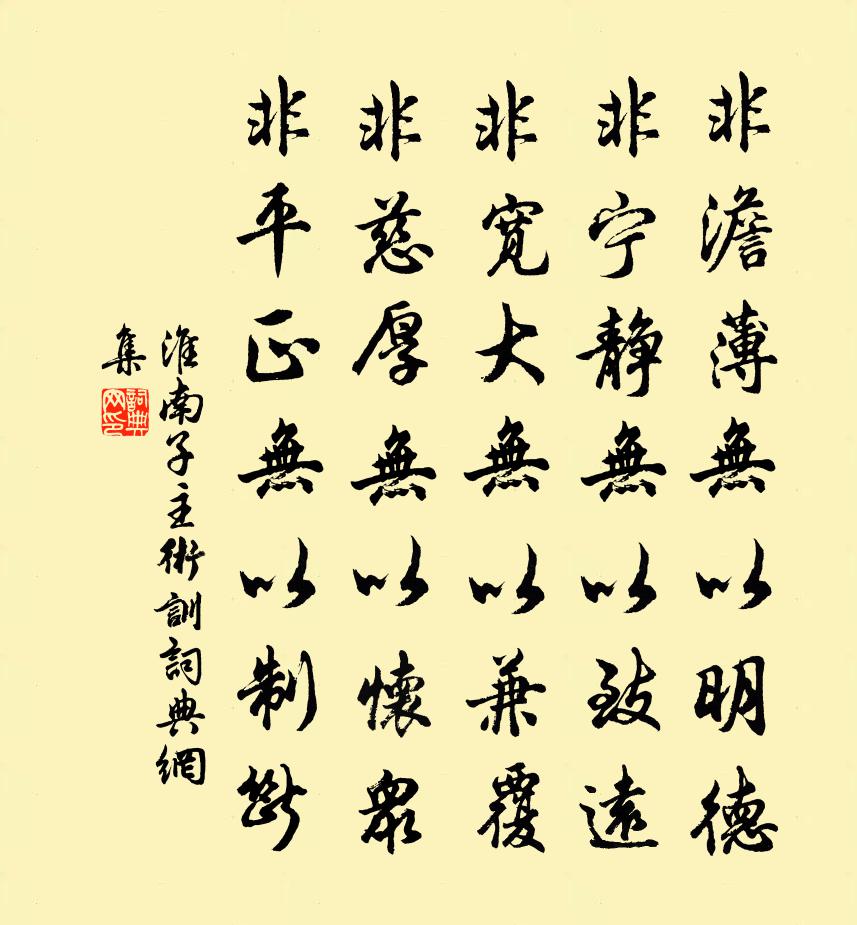 非澹薄無以明德
非宁靜無以致遠
非寬大無以兼覆
非慈厚無以懷衆
非平正無以制斷
淮南子主術訓詞典網
集
詞典
网印